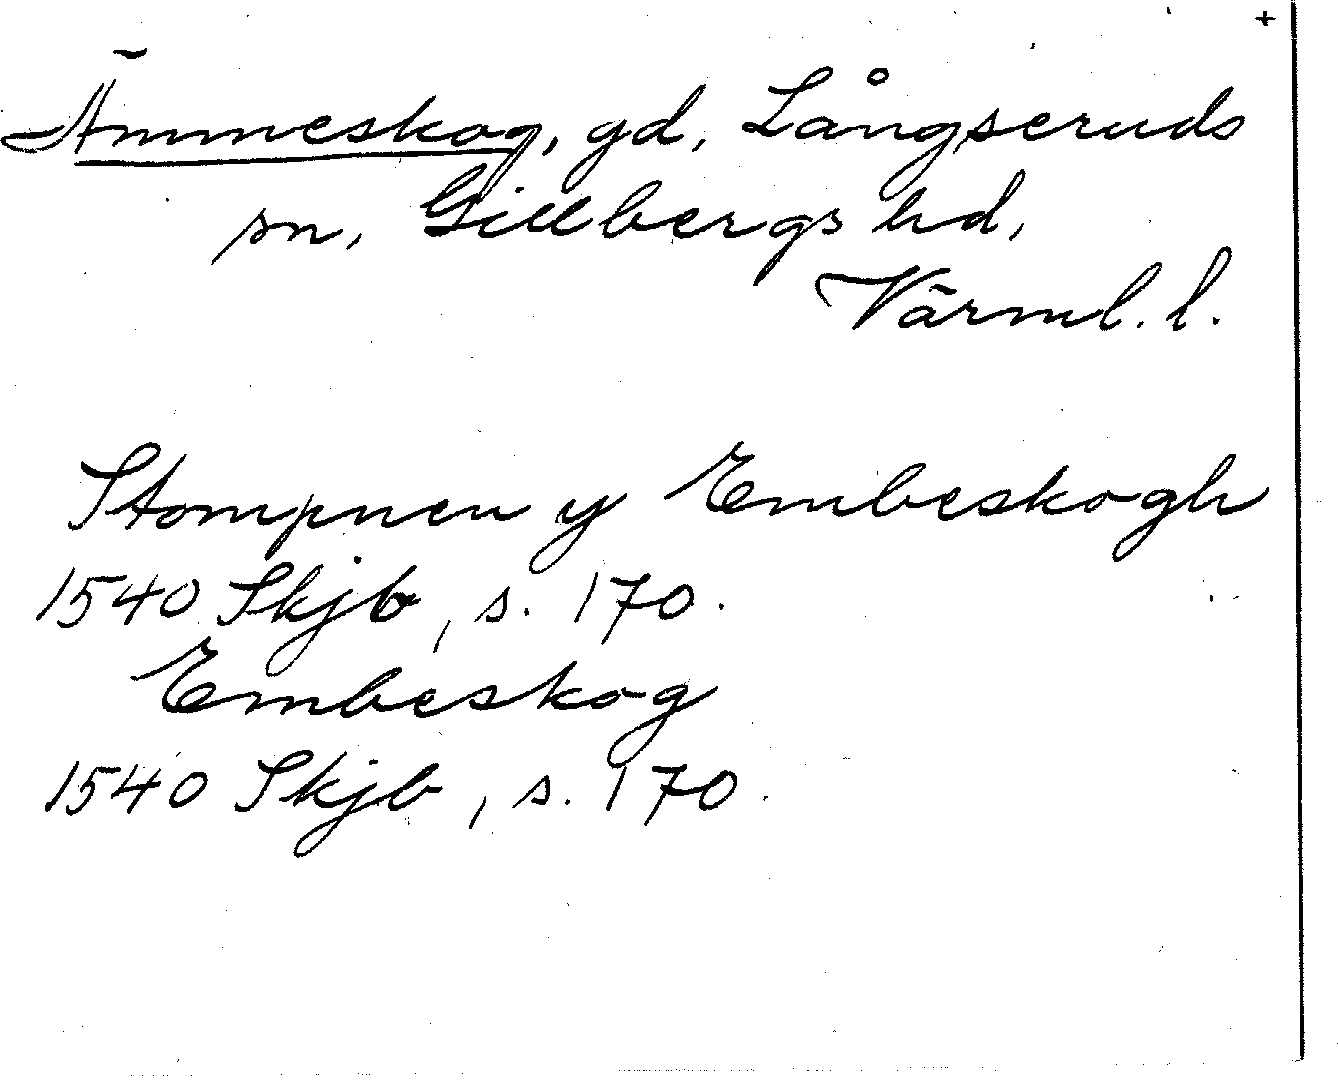 +
Ämmeskog, gd, Långseruds
sn, Gillbergs hd,
Värml. l.
Stompnen y Embeskogh
1540 Skjb, s. 170.
Embeskog
1540 Skjb, s. 170.